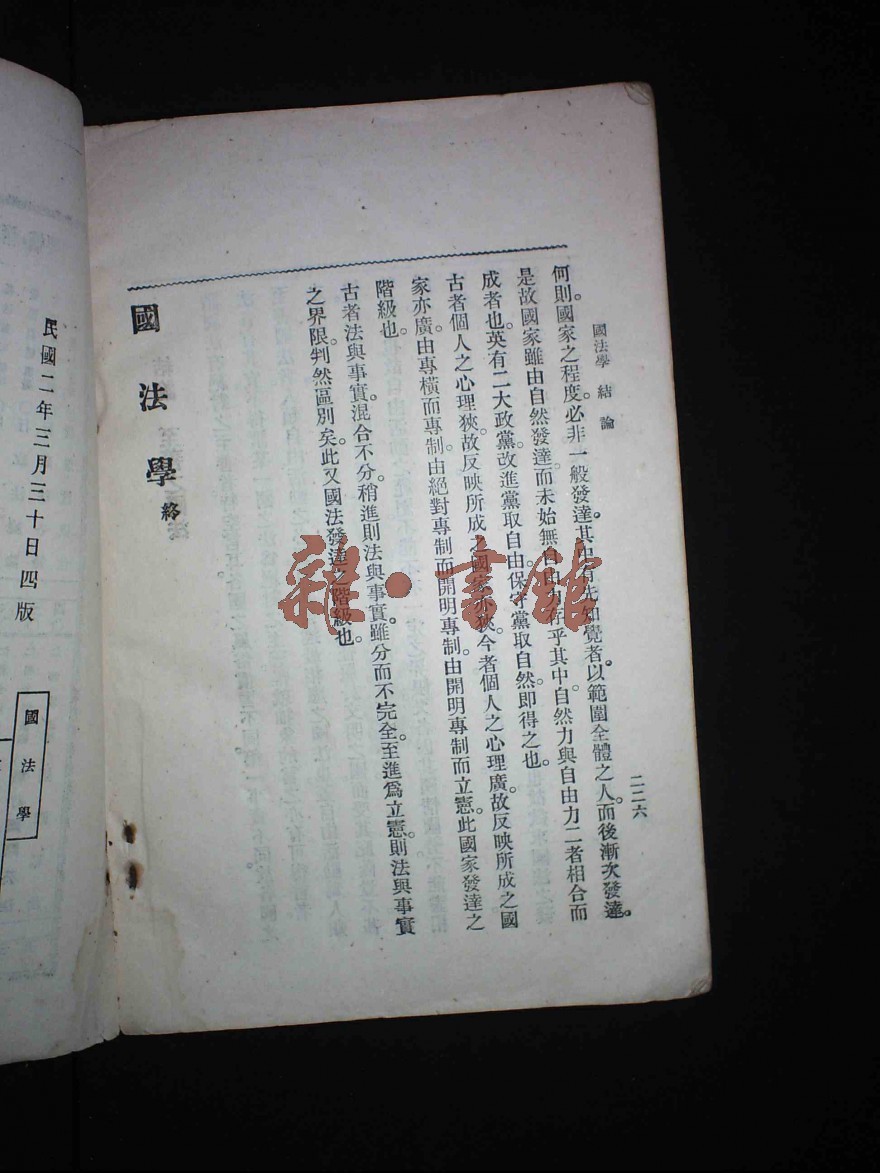 國法學 結論
二二六
何則。國家之程度。必非一般發達。其中有先知覺者。以範圍全體之人。而後漸次發達。
是故國家雖由自然發達。而未始無自由力存乎其中。自然力與自由力二者相合而
成者也。英有二大政黨。改進黨取自由。保守黨取自然。即得之也。
古者個人之心理狹。故反映所成之國家亦狹。今者個人之心理廣。故反映所成之國
家亦廣。由專橫而專制。由絕對專制而開明專制。由開明專制而立憲。此國家發達之
階級也。
古者法與事實混合不分。稍進則法與事實。雖分而不完全。至進爲立憲。則法與事實
之界限。判然區別矣。此又國法發達之階級也。
國法學 終
民國二年三月三十日四版
國法學
雜·書館